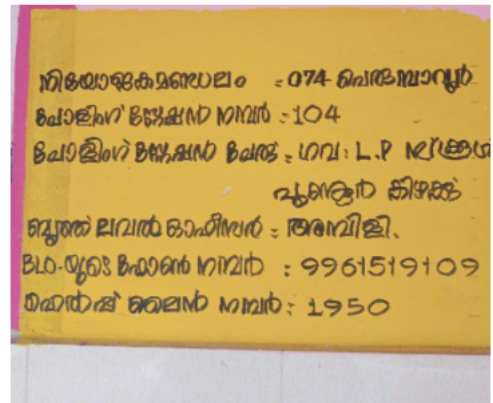 നിയോജകമണ്ഡലം :- 074 പെരുമ്പാവൂർ
പോളിംഗ് സ്റ്റേഷൻ നമ്പർ :- 104
പോളിംഗ് സ്റ്റേഷൻ പേര് :- ഗവ: L.P സ്കൂൾ
കിഴക്ക്
ബൂത്ത് ലവൽ ഓഫീസർ :- അമ്പിളി.
BLO-യുടെ ഫോൺ നമ്പർ : 9961519109
ഹെൽപ്പ് ലൈൻ നമ്പർ : 1950